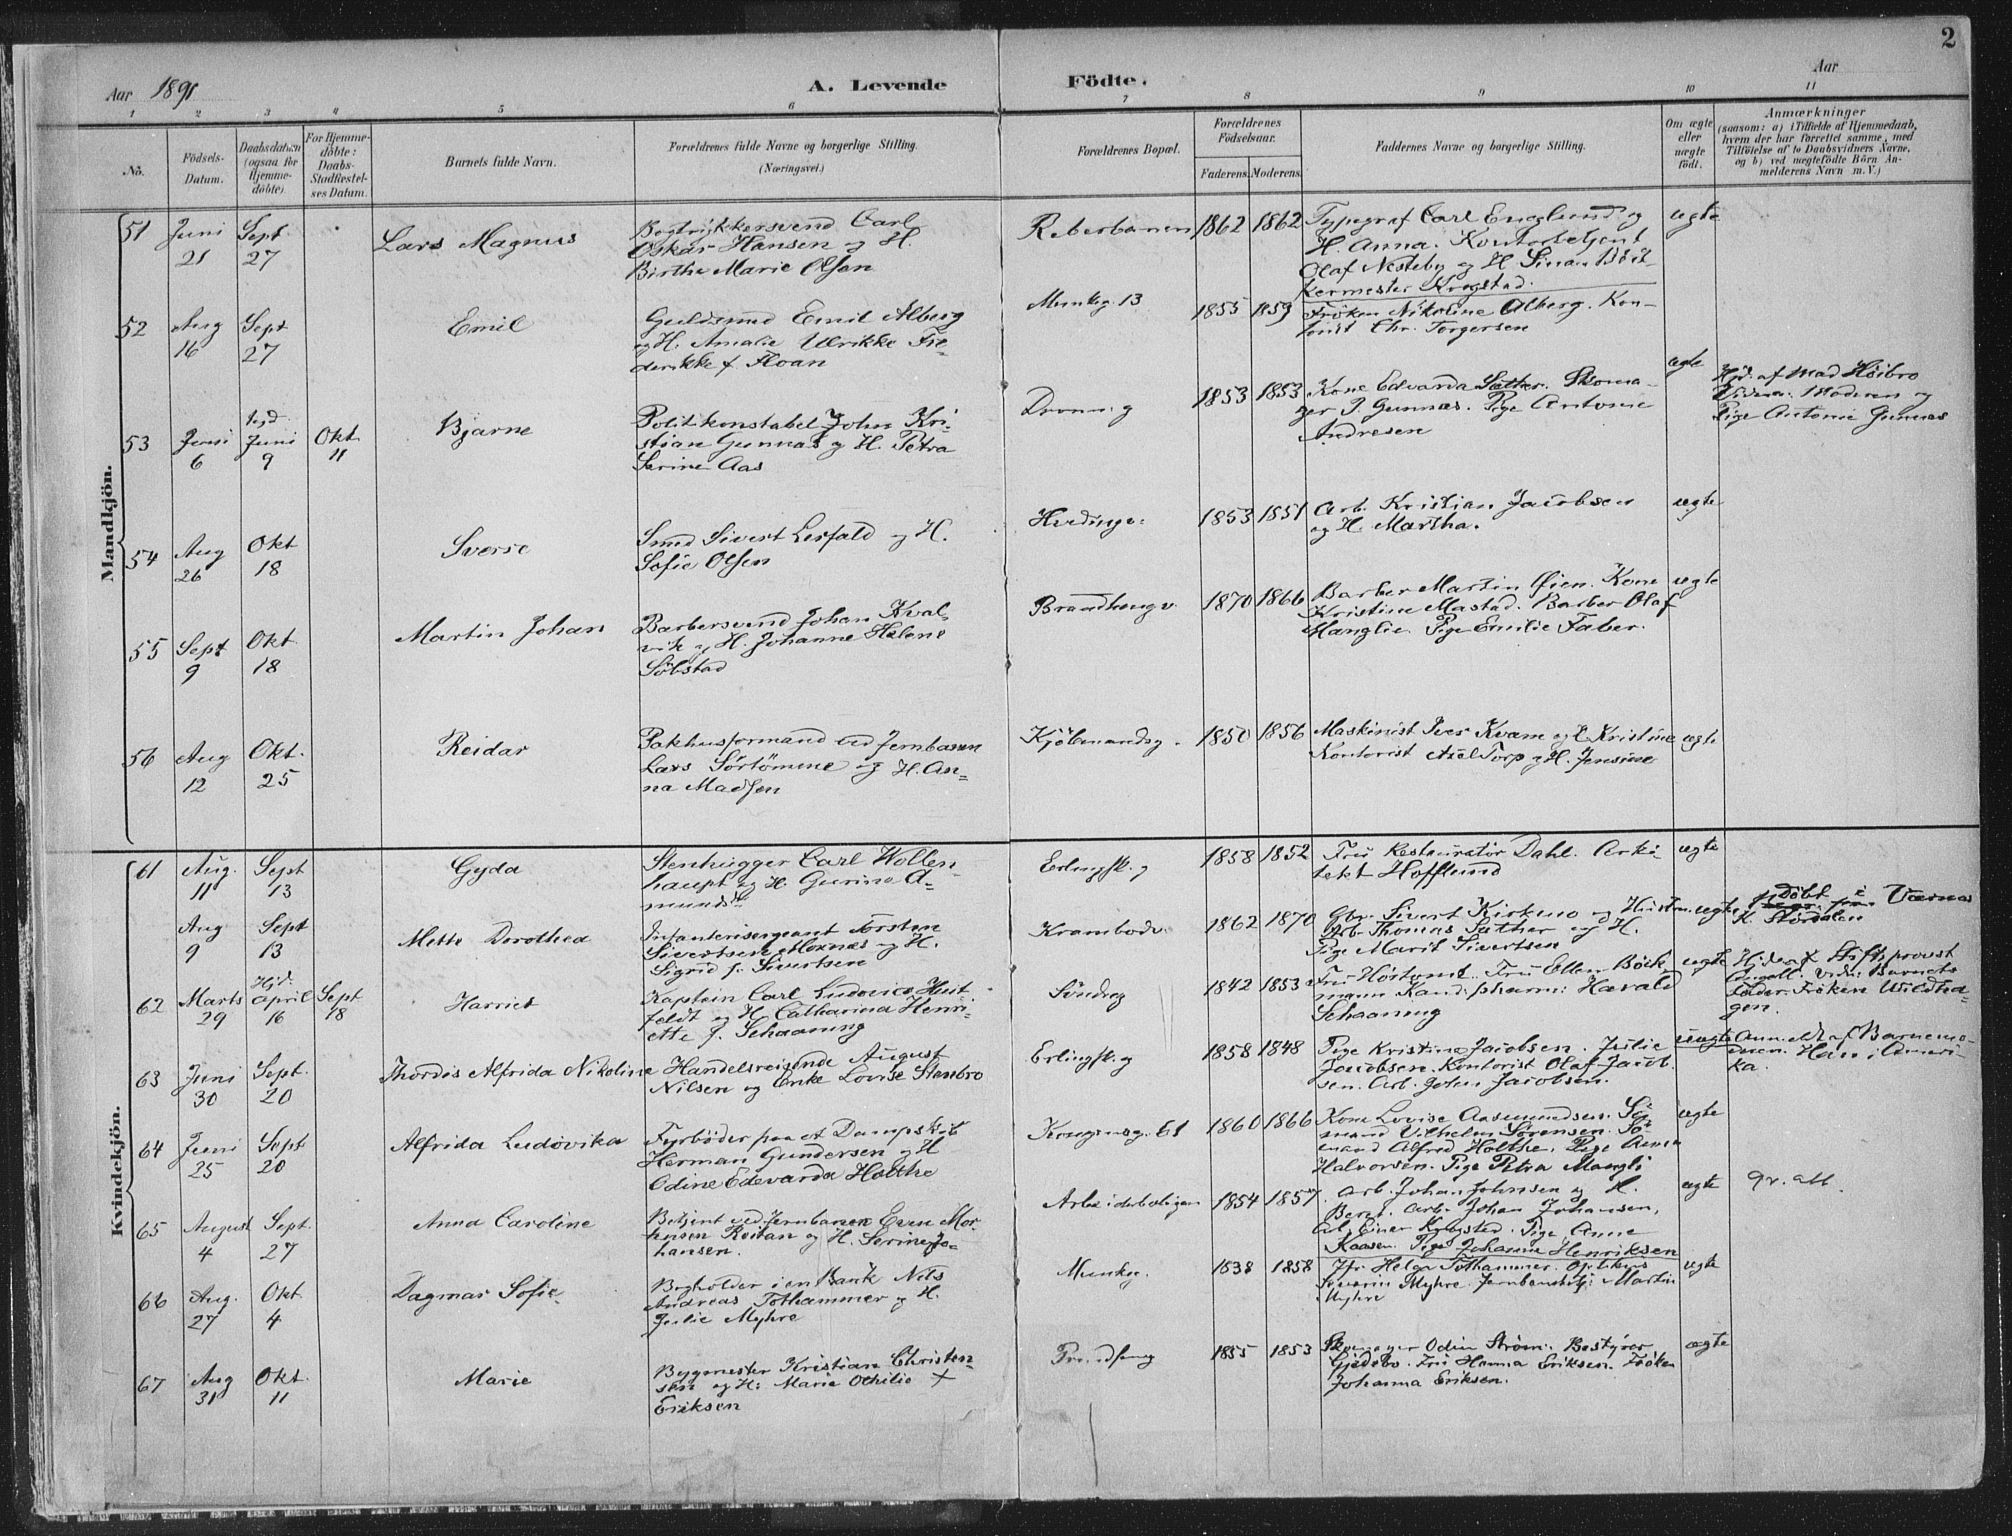 2
Aar 1891
A. Levende Födte.
Aar
1 2 3 4 5 6 7 8 9 10 11
No.
Födsels-Datum.
Daabsdatum (ogsaa for Hjemme-döbte)
For Hjemme-döbte: Daabs-Stadfæstel-ses Datum.
Barnets fulde Navn.
Forældrenes fulde Navne og borgerlige Stilling.
(Næringsvei.)
Forældrenes Bopæl.
Forældrenes Födselsaar.
Faderens. Moderens.
Faddernes Navne og borgerlige Stilling.
Om ægte eller uægte födt.
Anmærkninger
(saasom: a) i Tilfælde af Hjemmedaab,
hvem der har forrettet samme, med
Tilföielse af to Daabsvidners Navne,
og b) ved uægtefödte Börn An-
melderens Navn m. V.)
Mandkjön.
51 Juni 21 Sept. 27 Lars Magnus
Bogtrykkersvend Carl
Oskar Hansen og H.
Birthe Marie Olsen
Reberbanen 1862 1862
Typograf Carl Englund og
H. Anna. Kontorbetjent
Olaf Nesteby og H. Sina. Bök-
kermester Krogstad.
ægte
52 Aug 16 Sept 27 Emil
Guldsmed Emil Alberg
og H. Amalie Ulrikke Fre-
derikke f. Hoan
Munkg. 13 1855 1859
Fröken Nikoline Alberg. Kon-
torist Chr. Torgersen
ægte
53 Juni 6 Hjd. Juni 9 Okt 11 Bjarne
Politikonstabel John Kri-
stian Gunnas og H. Petra
Serine Aas
Dronn. g 1853 1853
Kone Edvarda Sæther. Skoma-
ger P. Gunnæs. Pige Antonie
Andresen
Hjd. af Mad Höibro
Vidner: Moderen og
Pige Antonie Gunnas
54 Aug 26 Okt 18 Sverse
Smed Sivert Lerfald og H.
Sofie Olsen
1853 1851
Arb. Kristian Jacobsen
og H. Martha.
ægte
55 Sept 9 Okt. 18 Martin Johan
Barbersvend Johan Kval-
vik og H. Johanne Helene
Söbstad
1870 1866
Barber Martin Öien. Kone
Kristine Mastad. Barber Olaf
Manglie. Pige Emilie Faber.
ægte
56 Aug 12 Okt. 25 Reidar
Pakhusformand ved Jernbanen
Lars Sörtömme og H. An-
na Madsen
Kjöbmandsg. 1850 1856
Maskinist Iver Kvam og H. Kristine
Kontorist Axel Torp og H. Jensine
ægte
Kvindekjön.
61 Aug. 11 Sept 13 Gyda
Stenhugger Carl Wollen-
haupt og H. Gurina A-
mundsd.
Erlingsk. g 1858 1852
Fru Restauratör Dahl. Arki-
tekt Hofflund
ægte
Aug 9 Sept 13 Mette Dorothea
Infanterisergeant Torsten
Sivertsen Moxnes og H.
Sigrid f. Sivertsen
Krambodv. 1862 1870
Gbr. Sivert Kirkmo og Hustru.
Arb. Thomas Sæther og H.
Pige Marit Sivertsen
ægte
Döbt i Værnes
K. Stördalen
62 Marts 29 Hjd. April 16 Sept 18 Harriet
Kaptein Carl Ludovico Huit-
feldt og H. Catharina Henri-
ette f. Schaaning
Söndreg 1842 1853
Fru Hörtomt. Fru Ellen Böck-
mann Kand. pharm: Harald
Schaaning
ægte
Hjd. af Stiftsprovst
Vidn: Barnets
Fader. Fröken Wildha-
gen.
63 Juni 30 Sept. 20 Thordis Alfrida Nikoline
Handelsreisende August
Nilsen og Enke Lovise Stenbro
Erlingsk. g 1858 1848
Pige Kristine Jacobsen. Julie
Jacobsen. Kontorist Olaf Jacob-
sen. Arb. John Jacobsen.
uægte
Anmeldt af Barnemo-
deren. Han i Ameri-
ka.
64 Juni 25 Sept 20 Alfrida Ludovika
Fyrböder paa et Dampskib
Herman Gundersen og H
Odine Edevarda Holthe
Kongensg. 61 1860 1866
Kone Lovise Aasmundsen. Sö-
mand Vilhelm Sörensen. Sö-
mand Alfred Holthe. Pige Anna
Halvorsen. Pige Petra Mangli
ægte
65 August 4 Sept. 27 Anna Caroline
Betjent ved Jernbanen Even Mor-
tensen Reitan og H. Serine Jo-
hansen.
Arbeiderboligen 1854 1857
Arb. Johan Johnsen og H.
Beret. Arb. Johan Johansen.
Einer Kybysted. Pige Anne
Kaasen. Pige Johanna Henriksen
ægte
9r. att.
66 Aug. 27 Okt. 4 Dagmar Sofie
Bogholder i en Bank Nils
Andreas Tothammer og H.
Julie Myhre
Munkg. 1838 1858
Jfr Helga Tothammer. Optikus
Severin Myhre. Jernbanebetj. Martin
Myhre
ægte
67 Aug 31 Okt. 11 Marie
Bygmester Kristian Christen-
sen og H. Marie Othilie +
Eriksen
1855 1853
Skomager Odin Ström. Bestyrer
Gjedebo. Fru Hanna Eriksen. Fröken
Johanna Eriksen.
ægte